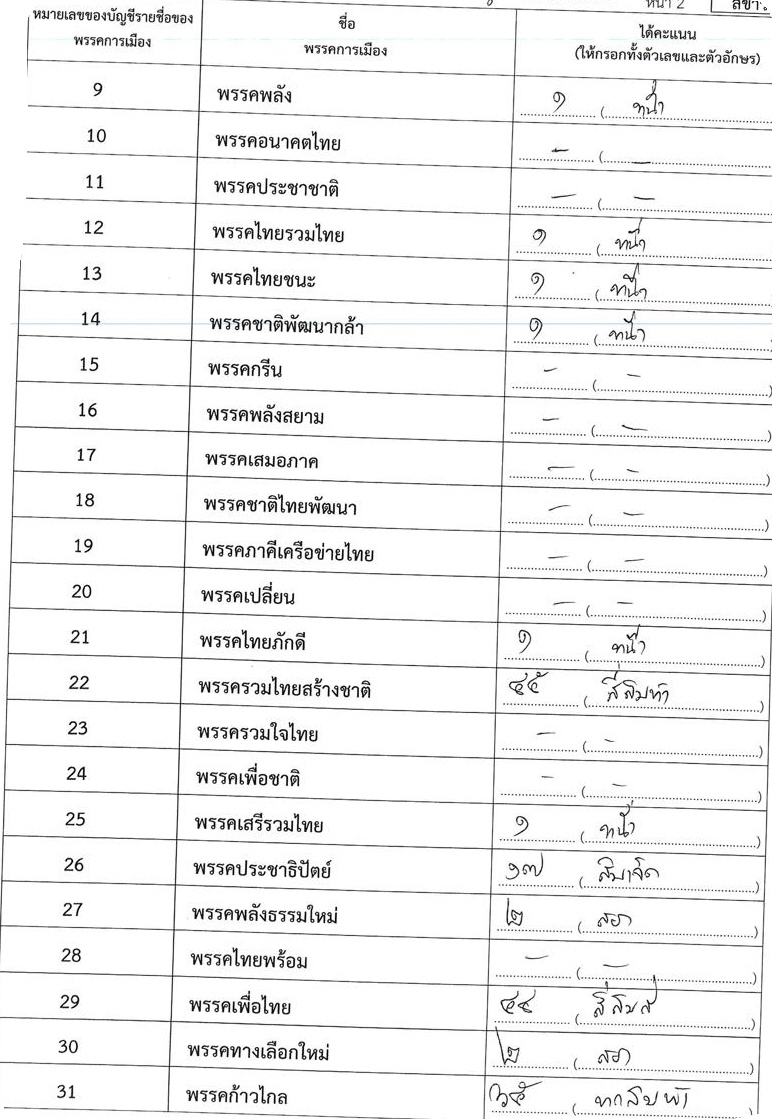 หน้า 2
หมายเลขของบัญชีรายชื่อของ
พรรคการเมือง
ชื่อ
พรรคการเมือง
ได้คะแนน
(ให้กรอกทั้งตัวเลขและตัวอักษร)
9 พรรคพลัง ๑ (หนึ่ง
10 พรรคอนาคตไทย - (-
11 พรรคประชาชาติ - (-
12 พรรคไทยรวมไทย ๑ (หนึ่ง
13 พรรคไทยชนะ ๑ (หนึ่ง
14 พรรคชาติพัฒนากล้า ๑ (หนึ่ง
15 พรรคกรีน - (-)
16 พรรคพลังสยาม - (-)
17 พรรคเสมอภาค - (-)
18 พรรคชาติไทยพัฒนา - (-)
19 พรรคภาคีเครือข่ายไทย - (-)
20 พรรคเปลี่ยน - (-)
21 พรรคไทยภักดี ๑ (หนึ่ง)
22 พรรครวมไทยสร้างชาติ ๔๕ (สี่สิบห้า)
23 พรรครวมใจไทย - (-)
24 พรรคเพื่อชาติ - (-)
25 พรรคเสรีรวมไทย ๑ (หนึ่ง)
26 พรรคประชาธิปัตย์ ๑๗ (สิบเจ็ด)
27 พรรคพลังธรรมใหม่ ๒ (สอง)
28 พรรคไทยพร้อม - (-)
29 พรรคเพื่อไทย ๔๔ (สี่สิบสี่)
30 พรรคทางเลือกใหม่ ๒ (สอง)
31 พรรคก้าวไกล ๖๕ (หกสิบห้า)